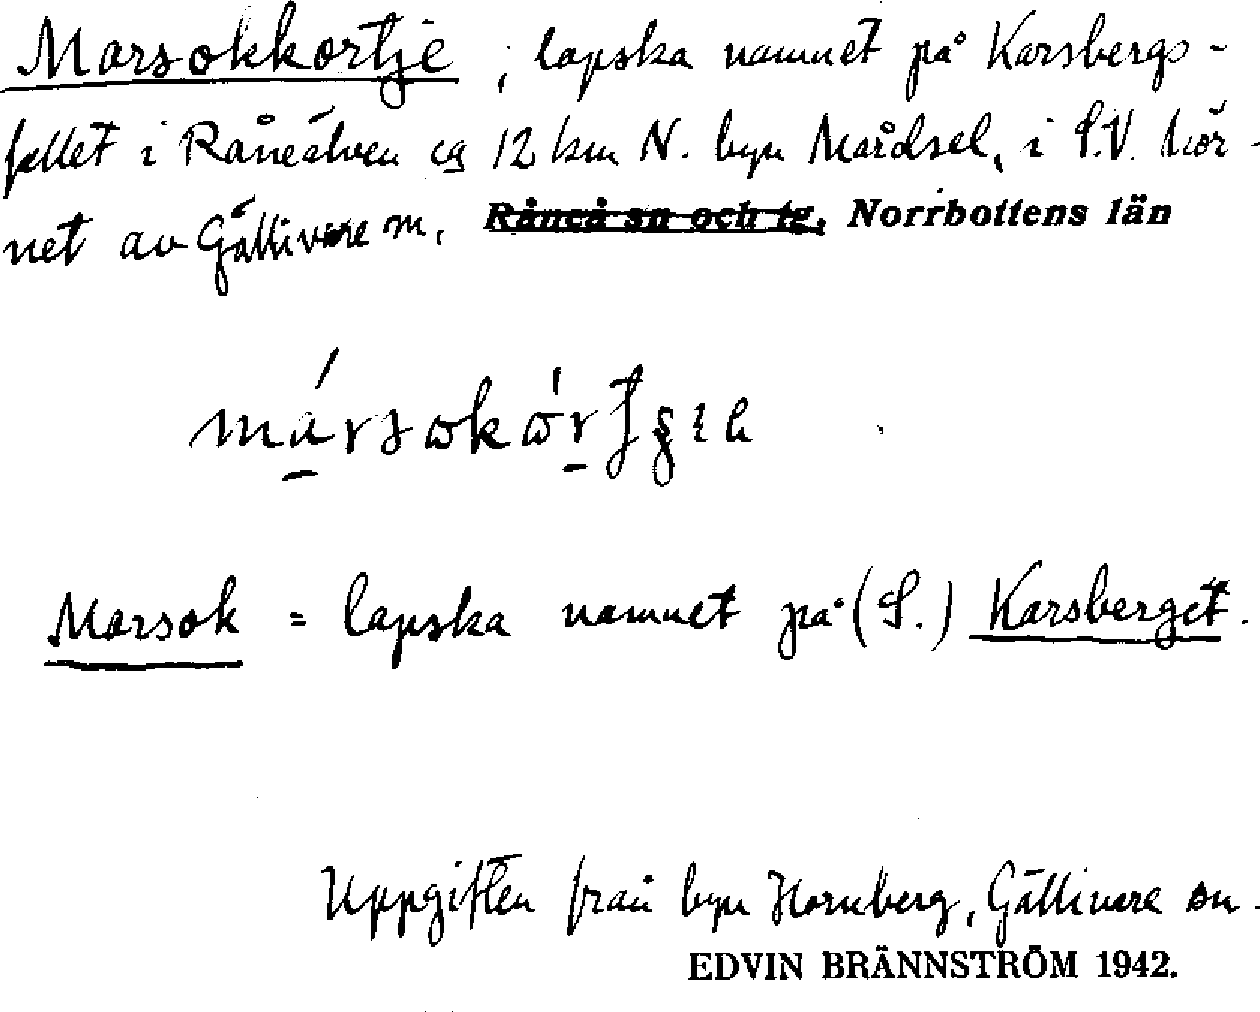 Marsokkortje, lapska namnet på Karsbergs-
fallet i Råneälven ca 12 km N. byn Mårdsel, i S.V. hör-
net av Gällivare sn. Råneå sn och tg, Norrbottens län
Marsok = lapska namnet på (S.) Karsberget.
Uppgiften från byn Hornberg, Gällivare sn.
EDVIN BRÄNNSTRÖM 1942.